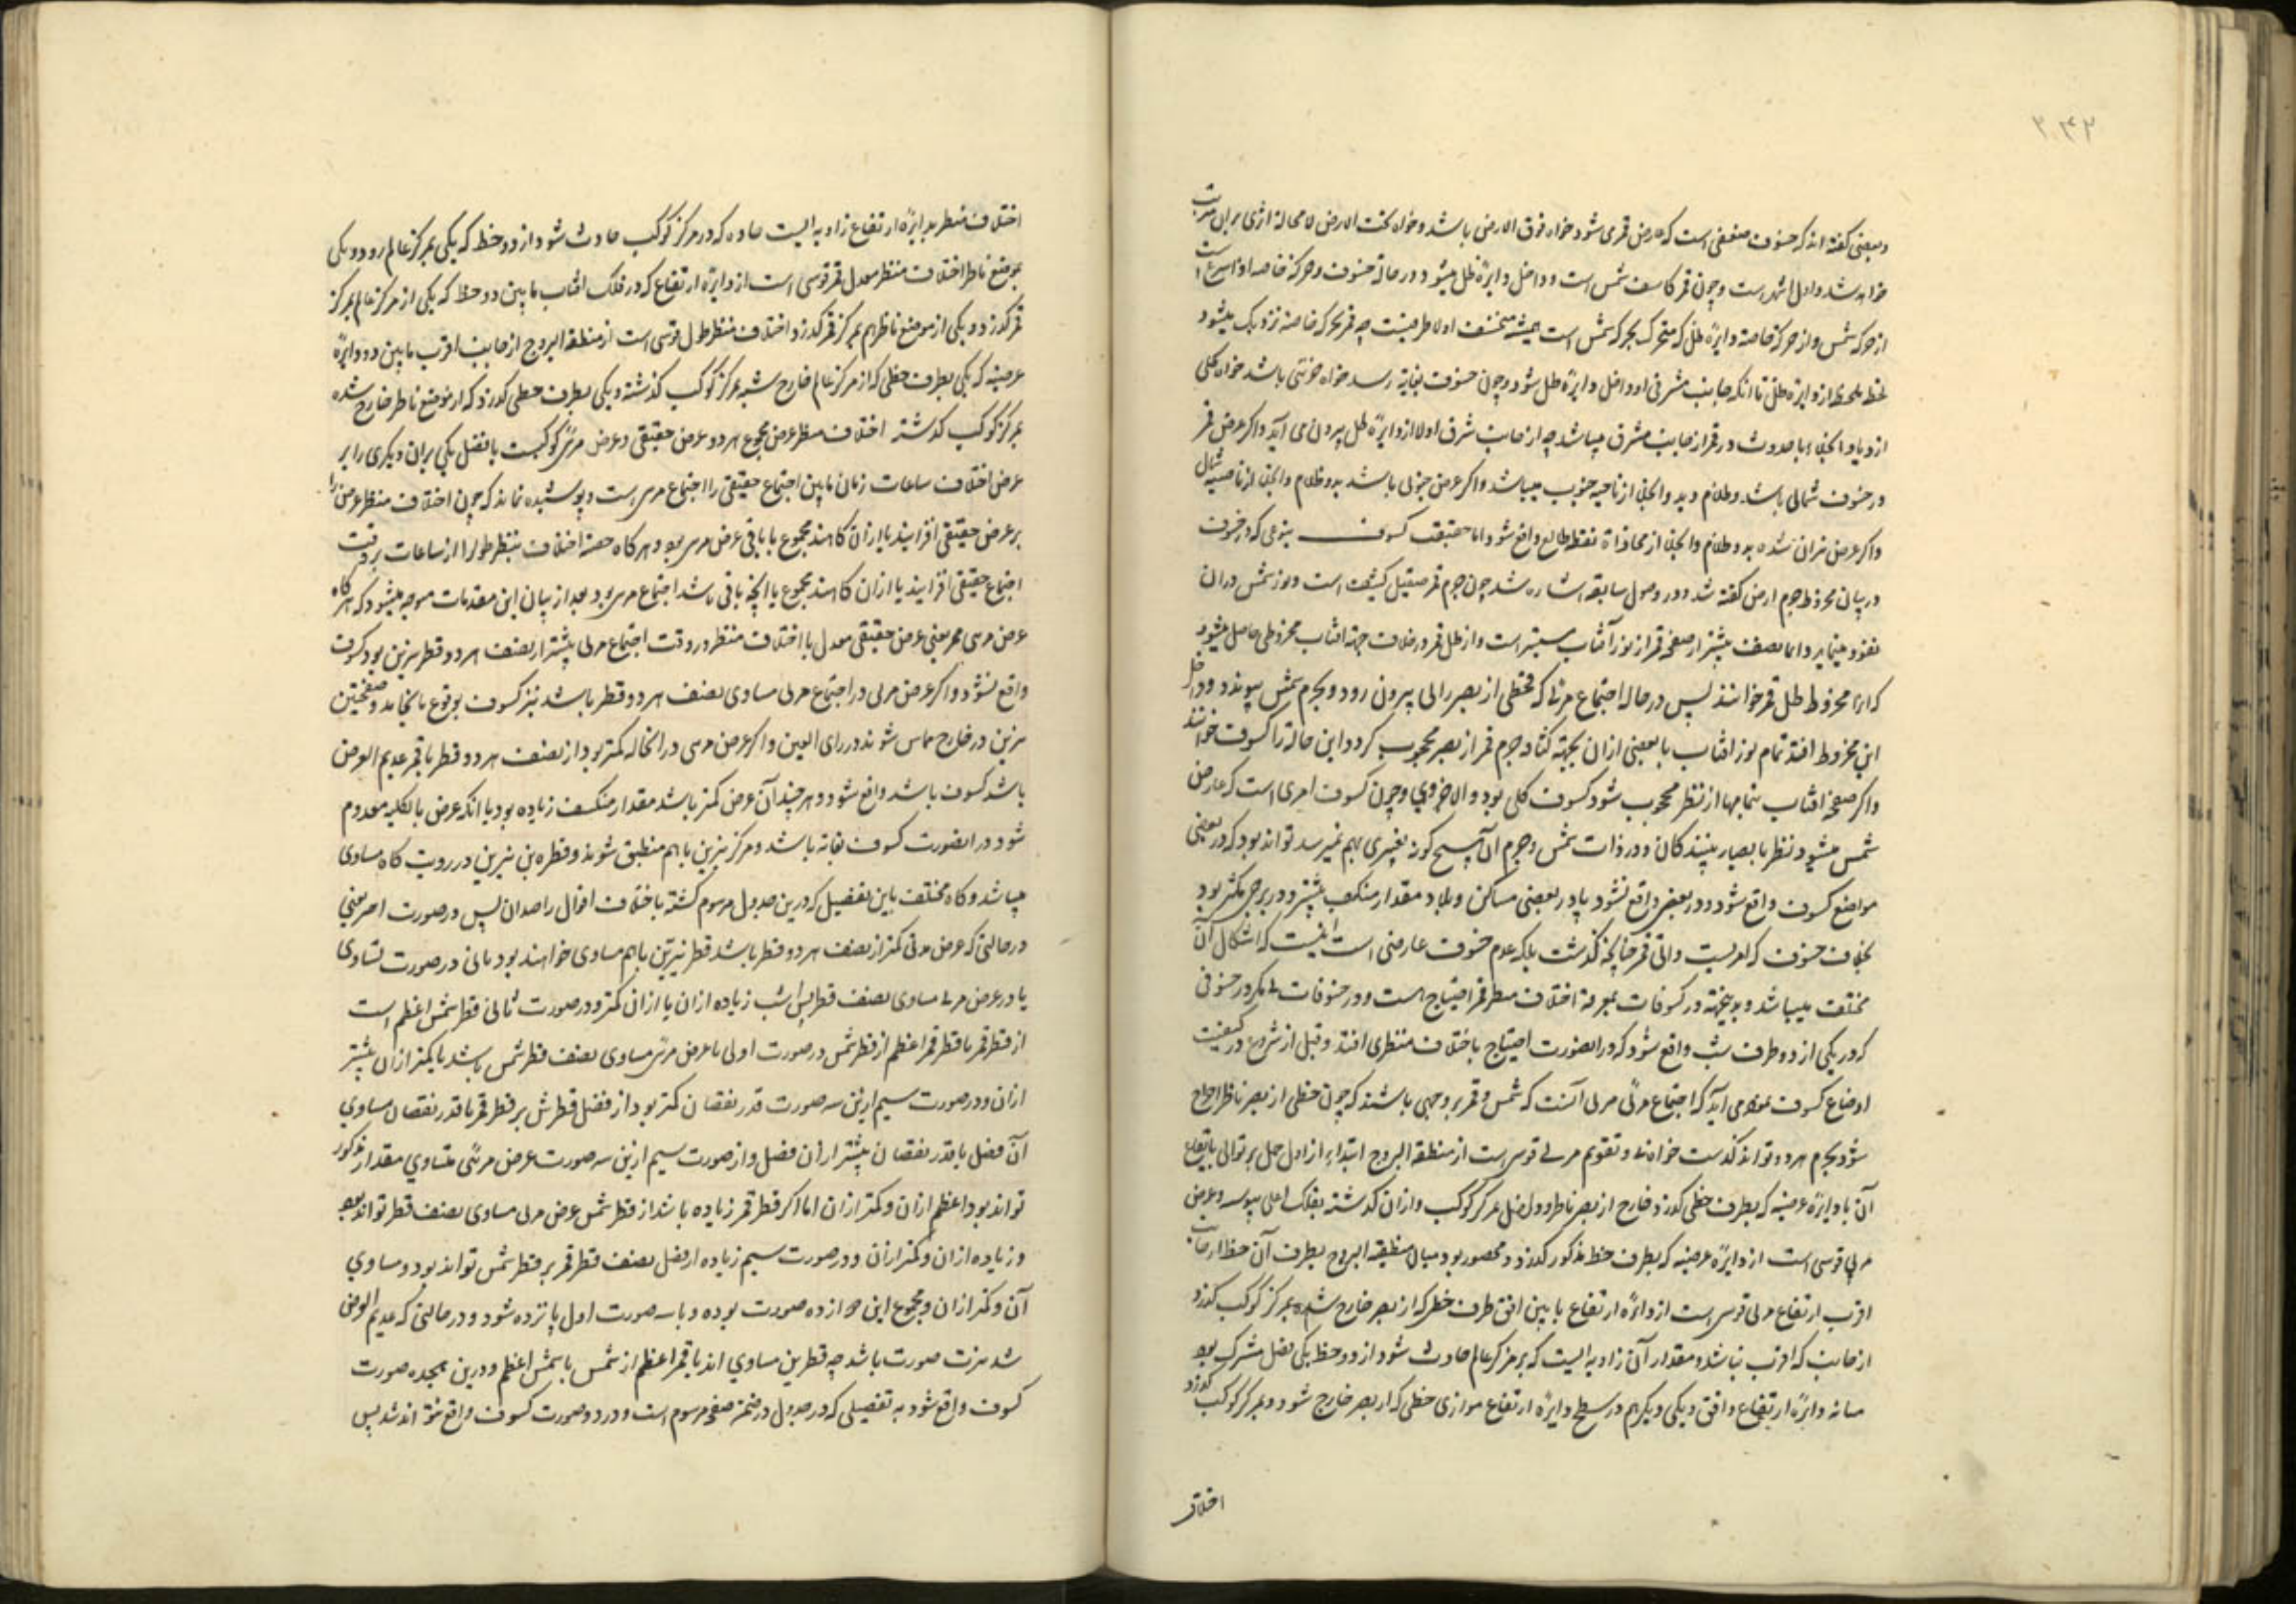 ۲۴۲
و بعضی گفته اند که خسوف صنفی است که عارض قمری شود خواه فوق الارض باشد و خواه تحت الارض لا محاله اثری بران مترتب
خواهد شد و اول اشهر است و چون قمر کاسف شمس است و داخل دایرهٔ ظل میشود در حالة خسوف و حرکة خاصه او اسرع است
از حرکة شمس و از حرکة خاصه دایرهٔ ظل که متحرک بحرکة شمس است همیشه منخسف اولا طرفیست چه قمر بحرکة خاصه نزدیک میشود
لحظه بلحظه از دایرهٔ ظل تا انکه جانب مشرقی او داخل دایرهٔ ظل شود و چون خسوف بغایة رسد خواه جزئی باشد خواه کلی
ازدیاد انجلا با حدوث در قمر از جانب مشرق میباشد چه از جانب شرق اولا از دایرهٔ ظل بیرون می آید و اگر عرض قمر
در خسوف شمالی باشد و ظلام و بدو انجلا از ناحیه جنوب میباشد و اگر عرض جنوبی باشد بدو ظلام و انجلا از ناحیه شمال
و اگر عرض نران شده بدو ظلام و انجلا از محاذاة نقطه طالع واقع شود اما حقیقت کسوف بنوعی که در خسوف
در بیان مخروط جرم ارض گفته شد و در وصول سابقه اشاره شد چون جرم قمر صیقل کثیف است و نور شمس دران
نفوذ مینماید دایما نصف بیشتر از صفحه قمر از نور آفتاب مستنیر است و از ظل قمر در خلاف جهة افتاب مخروطی حاصل میشود
که انرا مخروط ظل قمر خوانند پس در حالة اجتماع مرئی که خطی از بصر رائی بیرون رود و بجرم شمس پیوندد و داخل
این مخروط افتد تمام نور افتاب یا بعضی ازان بجهة کثافة جرم قمر از بصر محجوب گردد و این حالة را کسوف خوانند
و اگر صفحه افتاب بتمامها از نظر محجوب شود کسوف کلی بود و الا جزوی و چون کسوف امری است که عارض
شمس میشود نظر بابصار بینندگان و در ذات شمس و جرم ان هیچ گونه تغییری بهم نمیرسد تواند بود که در بعضی
مواضع کسوف واقع شود و در بعضی واقع نشود یا در بعضی مساکن و بلاد مقدار منکسف بیشتر و در برخی کمتر بود
بخلاف خسوف که امریست ذاتی قمر چنانچه گذشت بلکه عدم خسوف عارضی است اینست که اشکال آن
مختلف میباشد و بدینجهة در کسوفات بمعرفة اختلاف منظر قمر احتیاج است و در خسوفات نه مگر در خسوفی
که در یکی از دو طرف شب واقع شود که در انصورت احتیاج باختلاف منظری افتد و قبل از شروع در کیفیت
اوضاع کسوف بمقدم می آید که اجتماع مرئی آنست که شمس و قمر بر وجهی باشند که چون خطی از بصر ناظر اخراج
شود بجرم هردو تواند گذشت خواه نه و تقویم مرئی قوسی است از منطقة البروج ابتداء از اول حمل بر توالی بتقاطع
آن با دایرهٔ عرضیه که بطرف خطی گذرد خارج از بصر ناظر و واصل بمرکز کوکب و ازان گذشته بفلک اعلی پیوسته و عرض
مرئی قوسی است از دایرهٔ عرضیه که بطرف خط مذکور گذرد و محصور بود میان منطقة البروج بطرف آن خط از جانب
اقرب ارتفاع مرئی قوسی است از دایرهٔ ارتفاع ما بین افق طرف خطی که از بصر خارج شده بمرکز کوکب گذرد
از جانبی که اقرب نباشد و مقدار آن زاویه ایست که بر مرکز عالم حادث شود از دو خط یکی فصل مشترک بود
میانه دایرهٔ ارتفاع و افق و یکی دیگر هم در سطح دایرهٔ ارتفاع موازی خطی که از بصر خارج شود و بمرکز کوکب گذرد
اختلاف
اختلاف منظر بدایرهٔ ارتفاع زاویه ایست حاده که در مرکز کوکب حادث شود از دو خط که یکی بمرکز عالم رود و یکی
بموضع ناظر اختلاف منظر معدل قمر قوسی است از دایرهٔ ارتفاع که در فلک افتاب ما بین دو خط که یکی از مرکز عالم بمرکز
قمر گذرد و یکی از موضع ناظر هم بمرکز قمر گذرد اختلاف منظر طول قوسی است از منطقة البروج از جانب اقرب ما بین دو دایرهٔ
عرضیه که یکی بطرف خطی که از مرکز عالم خارج شده بمرکز کوکب گذشته و یکی بطرف خطی گذرد که از موضع ناظر خارج شده
بمرکز کوکب گذشته اختلاف منظر عرض مجموع هردو عرض حقیقی و عرض مرئی کوکبست یا فضل یکی بران دیگری را بر
عرض اختلاف ساعات زمان ما بین اجتماع حقیقی را اجتماع مرئی است و پوشیده نماند که چون اختلاف منظر عرض را
بر عرض حقیقی افزایند یا ازان کاهند مجموع یا باقی عرض مرئی بود و هر گاه حصه اختلاف منظر طول را از ساعات بر وقت
اجتماع حقیقی افزایند یا ازان کاهند مجموع یا انچه باقی باشد اجتماع مرئی بود بعد از بیان این مقدمات موجه میشود که هر گاه
عرض مرئی قمر یعنی عرض حقیقی معدل با اختلاف منظر در وقت اجتماع مرئی بیشتر از نصف هردو قطر نیرین بود کسوف
واقع نشود و اگر عرض مرئی در اجتماع مرئی مساوی نصف هردو قطر باشد نیز کسوف بوقوع نانجامد و صفحتین
نیرین در خارج مماس شوند در رای العین و اگر عرض مرئی در انحاله کمتر بود از نصف هردو قطر یا قمر عدیم العرض
باشد کسوف باشد واقع شود و هرچند آن عرض کمتر باشد مقدار منکسف زیاده بود یا انکه عرض بالکلیه معدوم
شود در انصورت کسوف بغایة باشد و مرکز نیرین با هم منطبق شوند و قطر هر بن نیرین در رویت گاه مساوی
میباشد و گاه مختلف باین تفصیل که درین جدول مرسوم گشته باختلاف اقوال راصدان پس در صورت اخر یعنی
در حالتی که عرض مرئی کمتر از نصف هردو قطر باشد قطر نیرین با هم مساوی خواهند بود یا نی در صورت تساوی
یا در عرض مرئی مساوی نصف قطر باشد زیاده ازان یا ازان کمتر و در صورت ثانی قطر شمس اعظم است
از قطر قمر یا قطر قمر اعظم از قطر شمس در صورت اولی یا عرض مرئی مساوی نصف قطر شمس باشد یا کمتر ازان بیشتر
ازان و در صورت سیم ازین سه صورت قدر نقصان کمتر بود از فضل قطر ش بر قطر قمر یا قدر نقصان مساوی
آن فضل یا قدر نقصان بیشتر ازان فضل و از صورت سیم ازین سه صورت عرض مرئی متساوی مقدار مذکور
تواند بود اعظم ازان و کمتر ازان اما اگر قطر قمر زیاده باشد از قطر شمس عرض مرئی مساوی نصف قطر تواند بود
و زیاده ازان و کمتر ازان و در صورت سیم زیاده از فضل نصف قطر قمر بر قطر شمس تواند بود و مساوی
آن و کمتر ازان و مجموع این دوازده صورت بوده و با سه صورت اول پانزده شود و در حالتی که عدیم العرض
شد نیز سه صورت باشد چه قطرین مساوی اند یا قمر اعظم از شمس یا شمس اعظم و درین هیجده صورت
کسوف واقع شود به تفصیلی که در جدول در ضمن صفحه مرسوم است و در دو صورت کسوف واقع نتواند شد پس